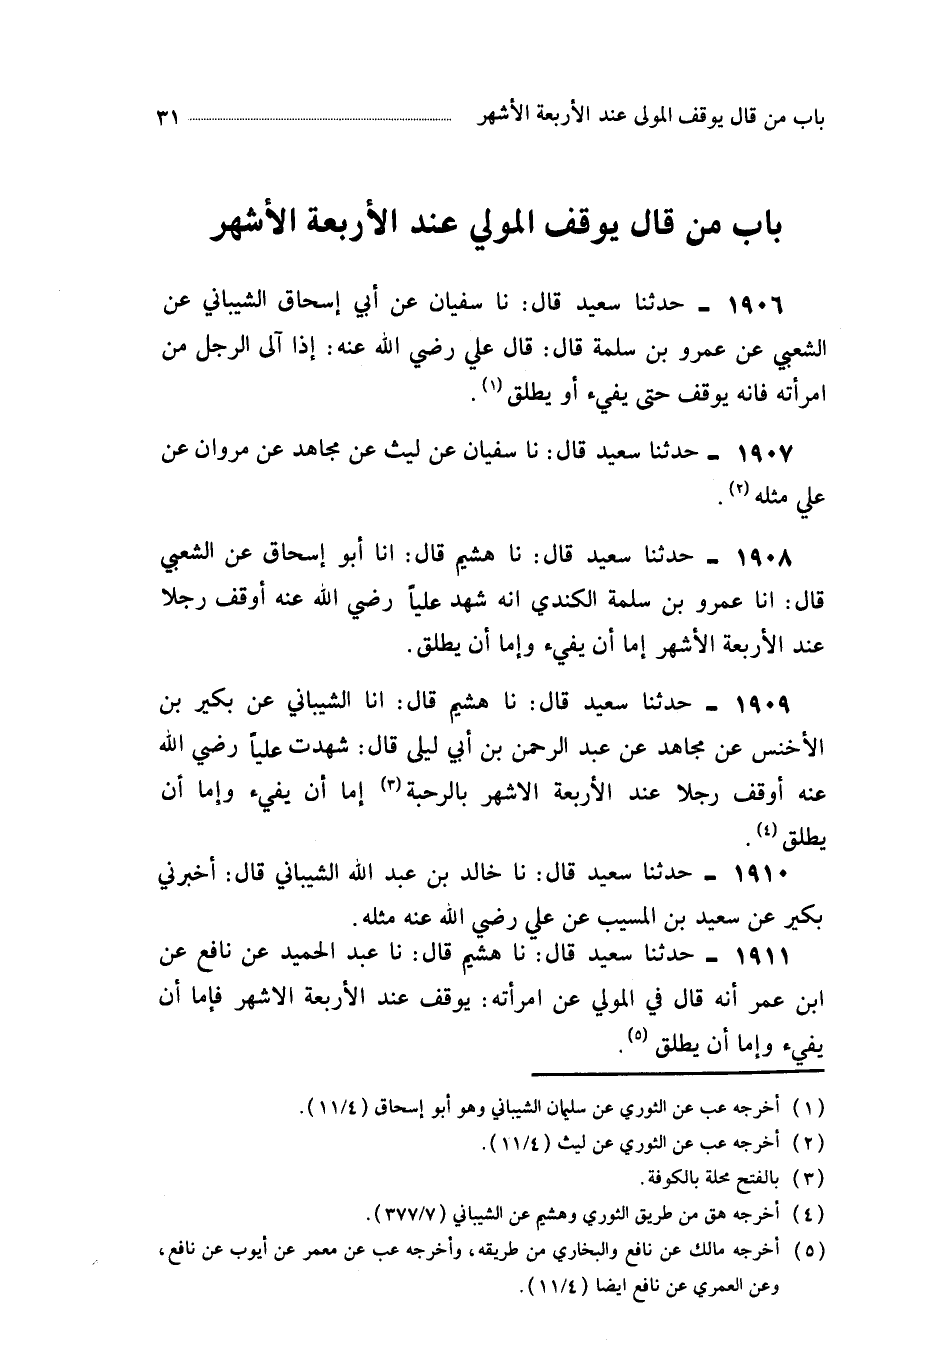 باب من قال يوقف المولى عند الأربعة الأشهر ٣١
باب من قال يوقف المولي عند الأربعة الأشهر
١٩٠٦ ـ حدثنا سعيد قال: نا سفيان عن أبي إسحاق الشيباني عن
الشعبي عن عمرو بن سلمة قال: قال علي رضي الله عنه: إذا آلى الرجل من
امرأته فانه يوقف حتى يفيء أو يطلق (١).
١٩٠٧ ـ حدثنا سعيد قال: نا سفيان عن ليث عن مجاهد عن مروان عن
علي مثله (٢).
١٩٠٨ ـ حدثنا سعيد قال: نا هشيم قال: انا أبو إسحاق عن الشعبي
قال: انا عمرو بن سلمة الكندي انه شهد علياً رضي الله عنه أوقف رجلا
عند الأربعة الأشهر إما أن يفيء وإما أن يطلق.
١٩٠٩ ـ حدثنا سعيد قال: نا هشيم قال: انا الشيباني عن بكير بن
الأخنس عن مجاهد عن عبد الرحمن بن أبي ليلى قال: شهدت علياً رضي الله
عنه أوقف رجلا عند الأربعة الاشهر بالرحبة (٣) إما أن يفيء وإما أن
يطلق (٤).
١٩١٠ ـ حدثنا سعيد قال: نا خالد بن عبد الله الشيباني قال: أخبرني
بكير عن سعيد بن المسيب عن علي رضي الله عنه مثله.
١٩١١ ـ حدثنا سعيد قال: نا هشيم قال: نا عبد الحميد عن نافع عن
ابن عمر أنه قال في المولي عن امرأته: يوقف عند الأربعة الاشهر فإما أن
يفيء وإما أن يطلق (٥).
(١) أخرجه عب عن الثوري عن سليمان الشيباني وهو أبو إسحاق (١١/٤).
(٢) أخرجه عب عن الثوري عن ليث (١١/٤).
(٣) بالفتح محلة بالكوفة.
(٤) أخرجه هق من طريق الثوري وهشيم عن الشيباني (٣٧٧/٧).
(٥) أخرجه مالك عن نافع والبخاري من طريقه، وأخرجه عب عن معمر عن أيوب عن نافع،
وعن العمري عن نافع ايضا (١١/٤).